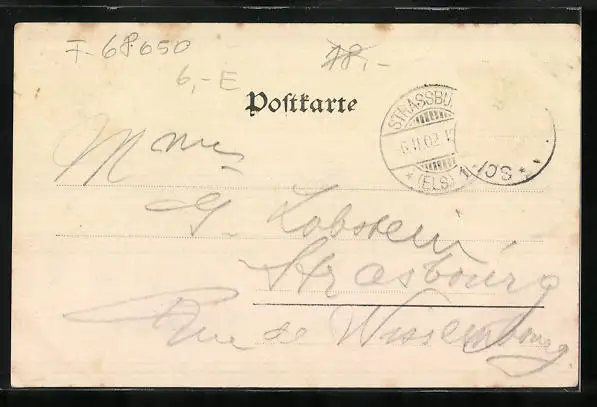 F-68050
18,-
6,-E
Postkarte
STRASSBU
6.11.02
* (ELS)
Mmes
G. Lobstein
Strasbourg
Rue de Wissembourg